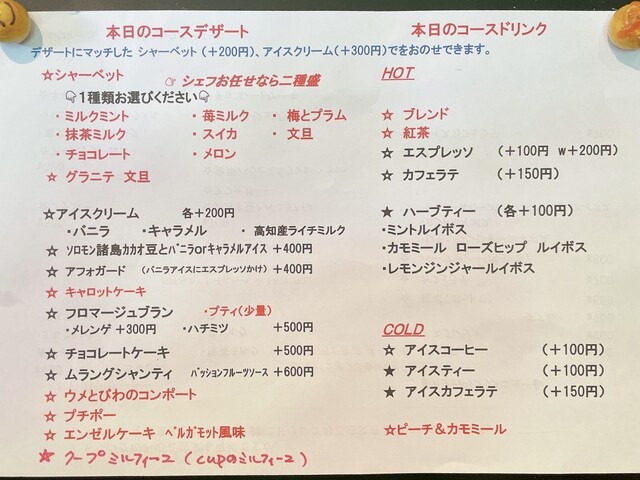 本日のコースデザート
デザートにマッチした シャーベット（＋200円）、アイスクリーム（＋300円）でをおのせできます。
☆シャーベット ☞ シェフお任せなら二種盛
👇1種類お選びください👇
・ミルクミント ・苺ミルク ・梅とプラム
・抹茶ミルク ・スイカ ・文旦
・チョコレート ・メロン
☆ グラニテ 文旦
☆アイスクリーム 各＋200円
・バニラ ・キャラメル ・高知産ライチミルク
☆ ソロモン諸島カカオ豆とバニラorキャラメルアイス ＋400円
☆ アフォガード （バニラアイスにエスプレッソかけ）＋400円
☆ キャロットケーキ
☆ フロマージュブラン ・プティ(少量)
・メレンゲ ＋300円 ・ハチミツ ＋500円
☆ チョコレートケーキ ＋500円
★ ムラングシャンティ パッションフルーツソース ＋600円
☆ ウメとびわのコンポート
☆ プチポー
☆ エンゼルケーキ ベルガモット風味
☆ クープミルフィーユ（cupのミルフィーユ）
本日のコースドリンク
HOT
☆ ブレンド
☆ 紅茶
☆ エスプレッソ （＋100円 w＋200円）
☆ カフェラテ （＋150円）
★ ハーブティー （各＋100円）
・ミントルイボス
・カモミール ローズヒップ ルイボス
・レモンジンジャールイボス
COLD
☆ アイスコーヒー （＋100円）
★ アイスティー （＋100円）
★ アイスカフェラテ （＋150円）
☆ピーチ＆カモミール